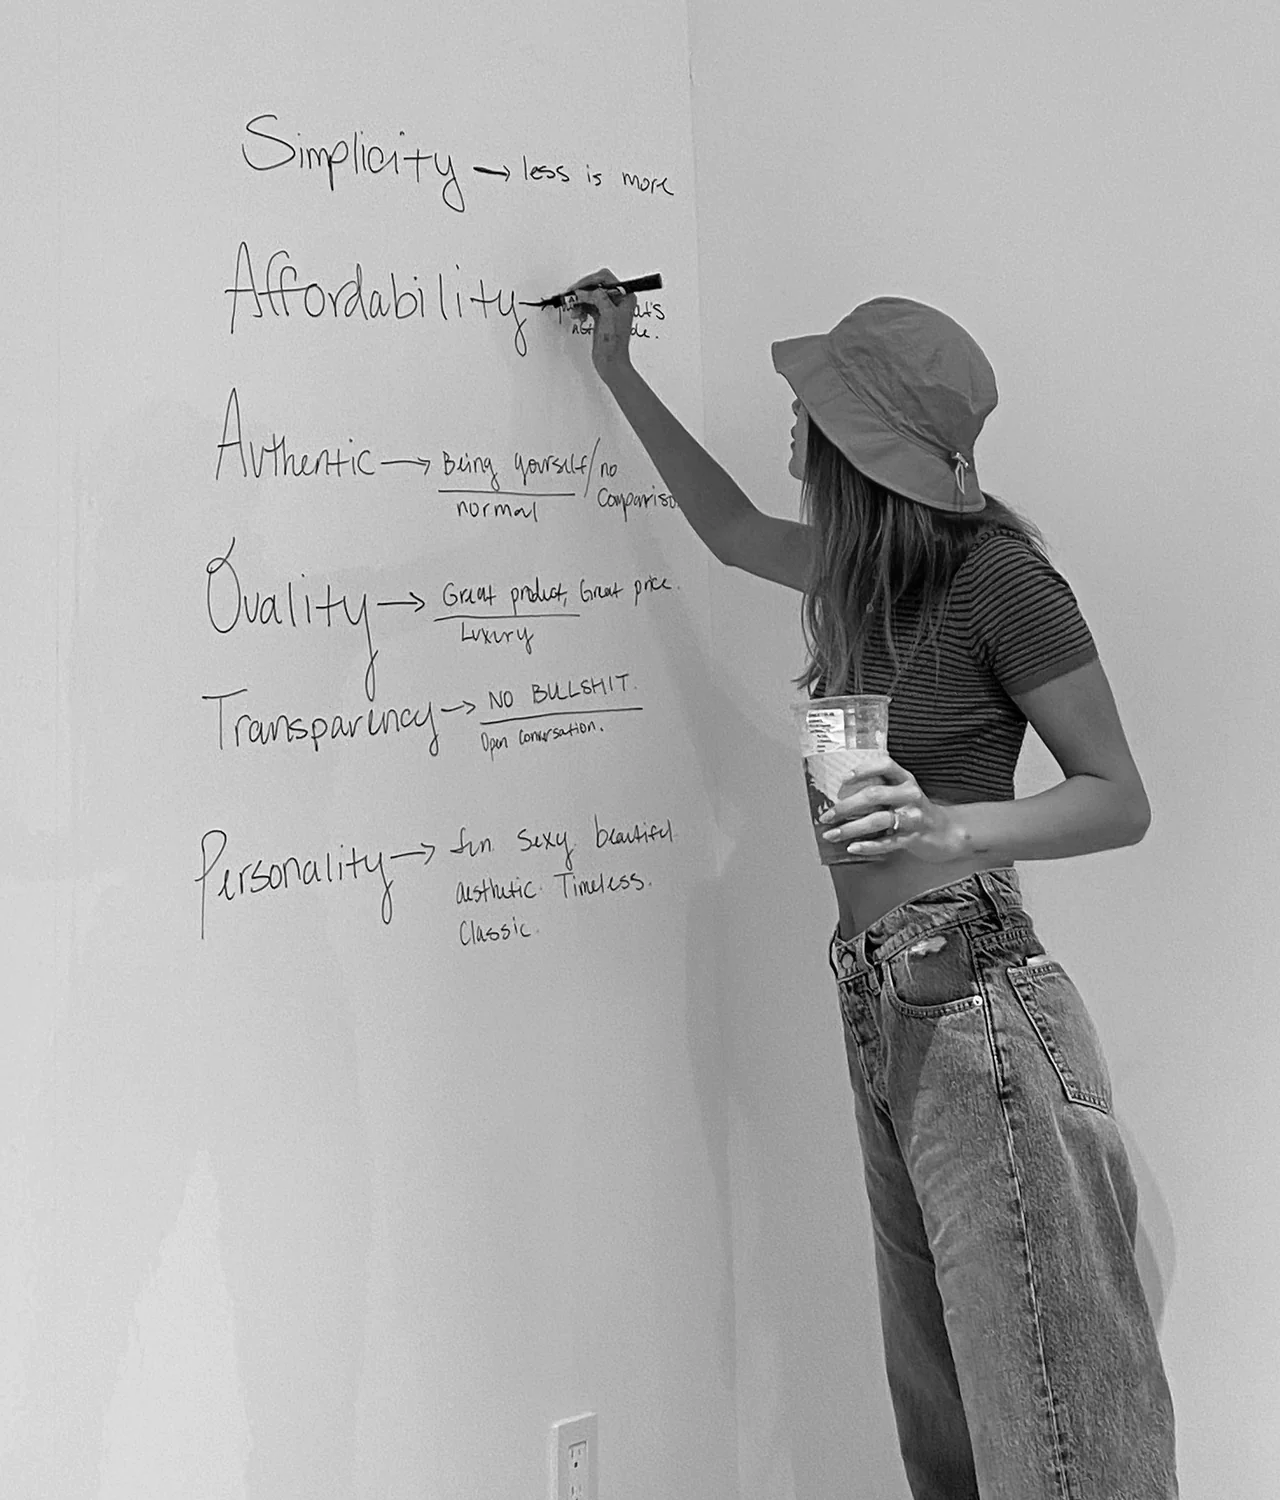 Simplicity → less is more
Affordability
Authentic → Being yourself/no
Comparison
normal
Quality → Great product, Great price.
Luxury
Transparency → NO BULLSHIT.
Open conversation.
Personality → fun sexy. beautiful
aesthetic. Timeless.
Classic.